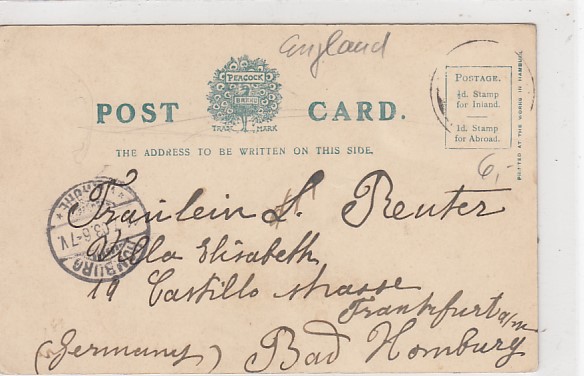 England
PEACOCK
BRAND
TRADE MARK
POST CARD.
THE ADDRESS TO BE WRITTEN ON THIS SIDE.
POSTAGE.
½d. Stamp
for Inland.
1d. Stamp
for Abroad.
PRINTED AT THE WORKS IN HAMBURG.
6,-
Fräulein L. Reuter
Villa Elisabeth
19 Castillo strasse
Frankfurt a/m
(Germany) Bad Homburg
HOMBURG
6-7V.